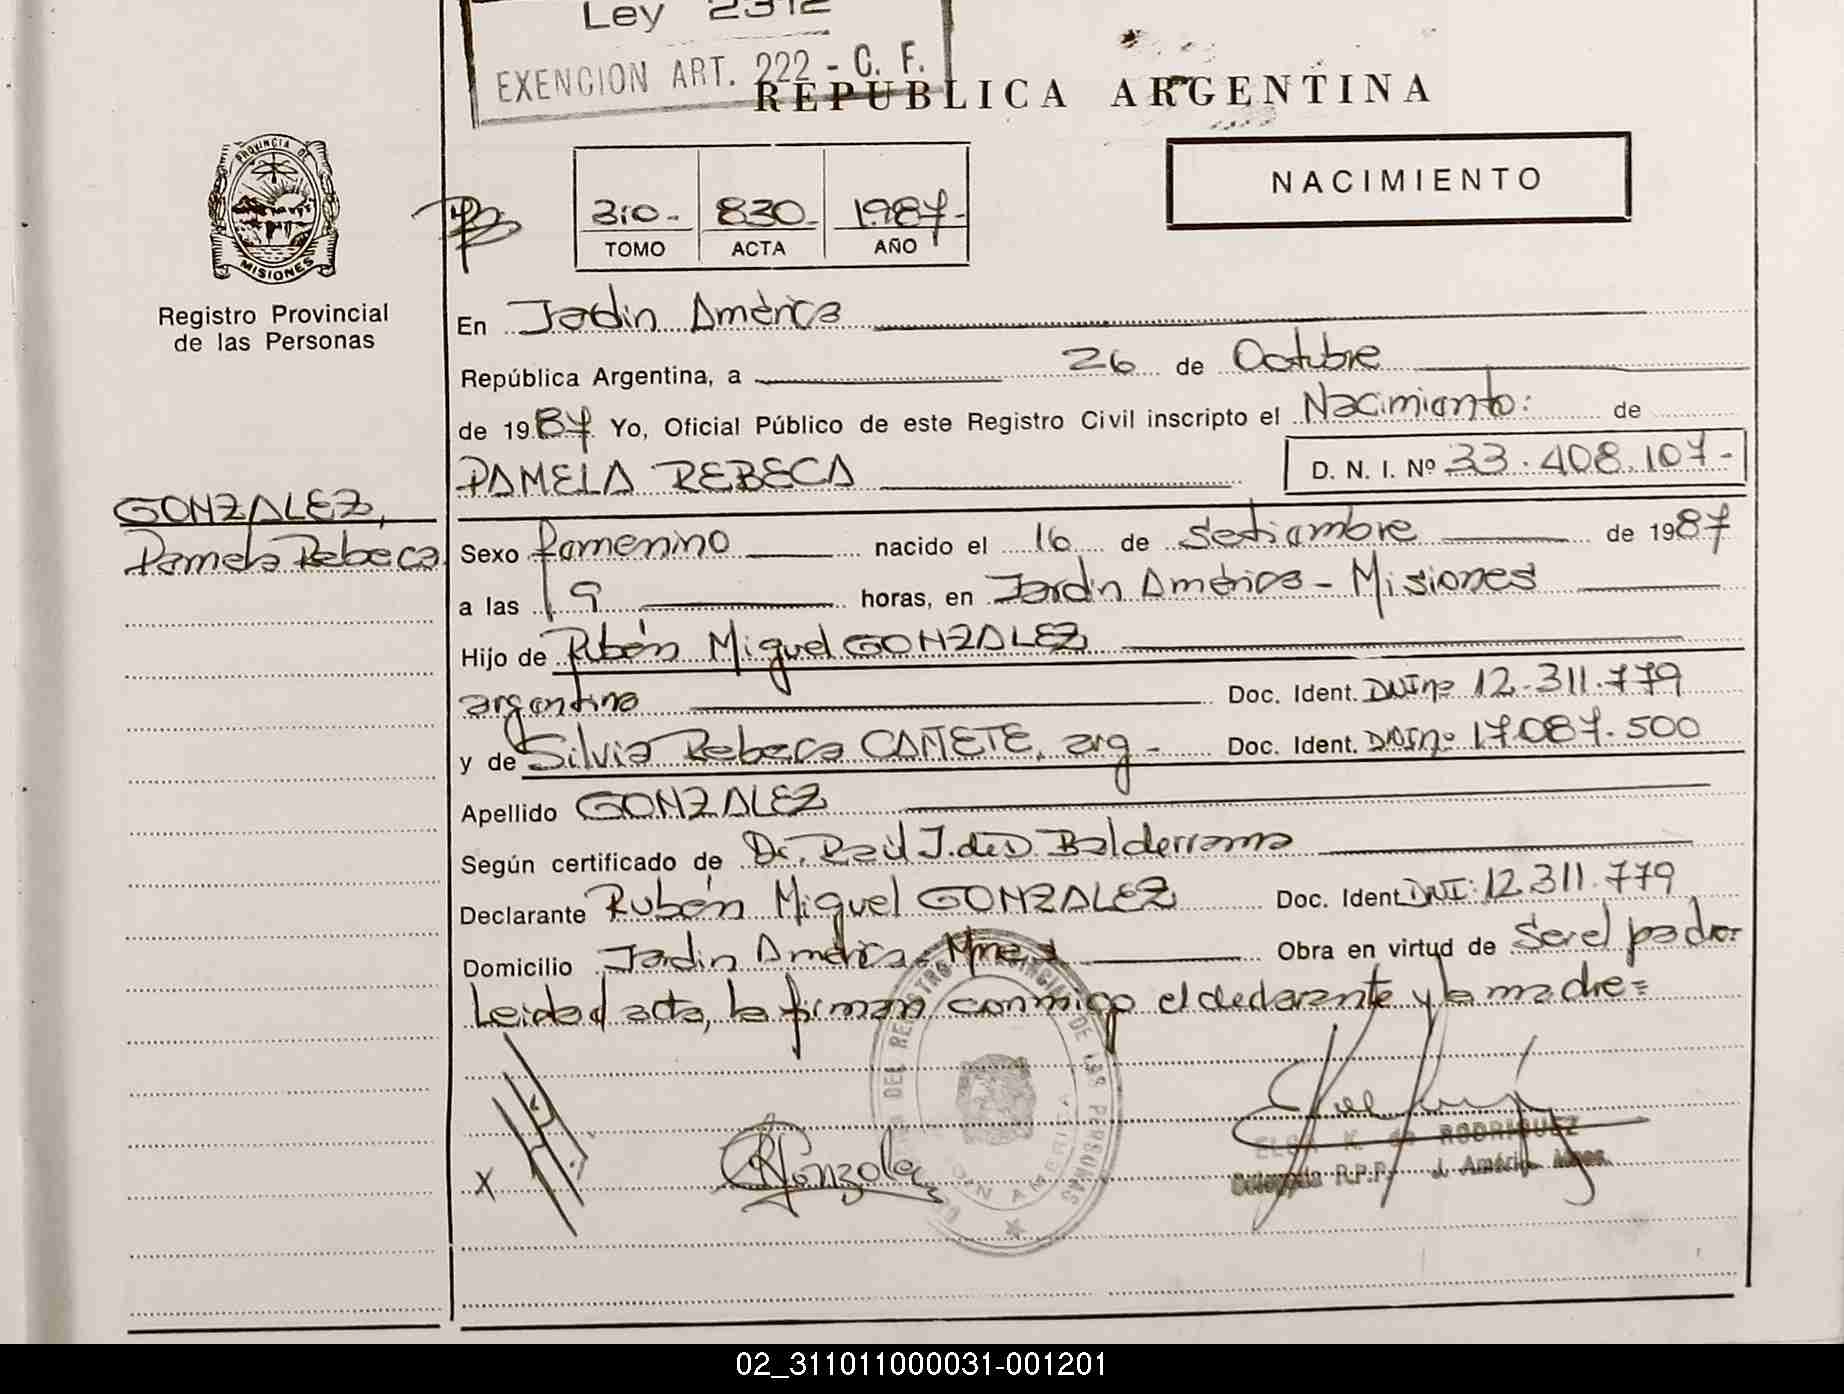 Ley 2312
EXENCION ART. 222 - C. F.
REPUBLICA ARGENTINA
PROVINCIA DE
MISIONES
Registro Provincial
de las Personas
310.- 830.- 1987.-
TOMO ACTA AÑO
NACIMIENTO
En Jardín América
República Argentina, a 26 de Octubre
de 1987 Yo, Oficial Público de este Registro Civil inscripto el Nacimiento: de
PAMELA REBECA D. N. I. Nº 33.408.107-
GONZALEZ,
Pamela Rebeca
Sexo femenino nacido el 16 de Setiembre de 1987
a las 9 horas, en Jardín América - Misiones
Hijo de Rubén Miguel GONZALEZ
argentino Doc. Ident. DNI nº 12.311.779
y de Silvia Rebeca CAÑETE, arg - Doc. Ident. DNI nº 17.087.500
Apellido GONZALEZ
Según certificado de Dr. Raúl J. de D. Balderrama
Declarante Rubén Miguel GONZALEZ Doc. Ident DNI: 12.311.779
Domicilio Jardín América - Mnes Obra en virtud de Ser el padre
Leida el acta, la firman conmigo el declarante y la madre=
DEL REGISTRO PROVINCIAL DE LAS PERSONAS
X
RGonzalez
K. de RODRIGUEZ
Delegada R.P.P. J. América Mnes.
02_311011000031-001201